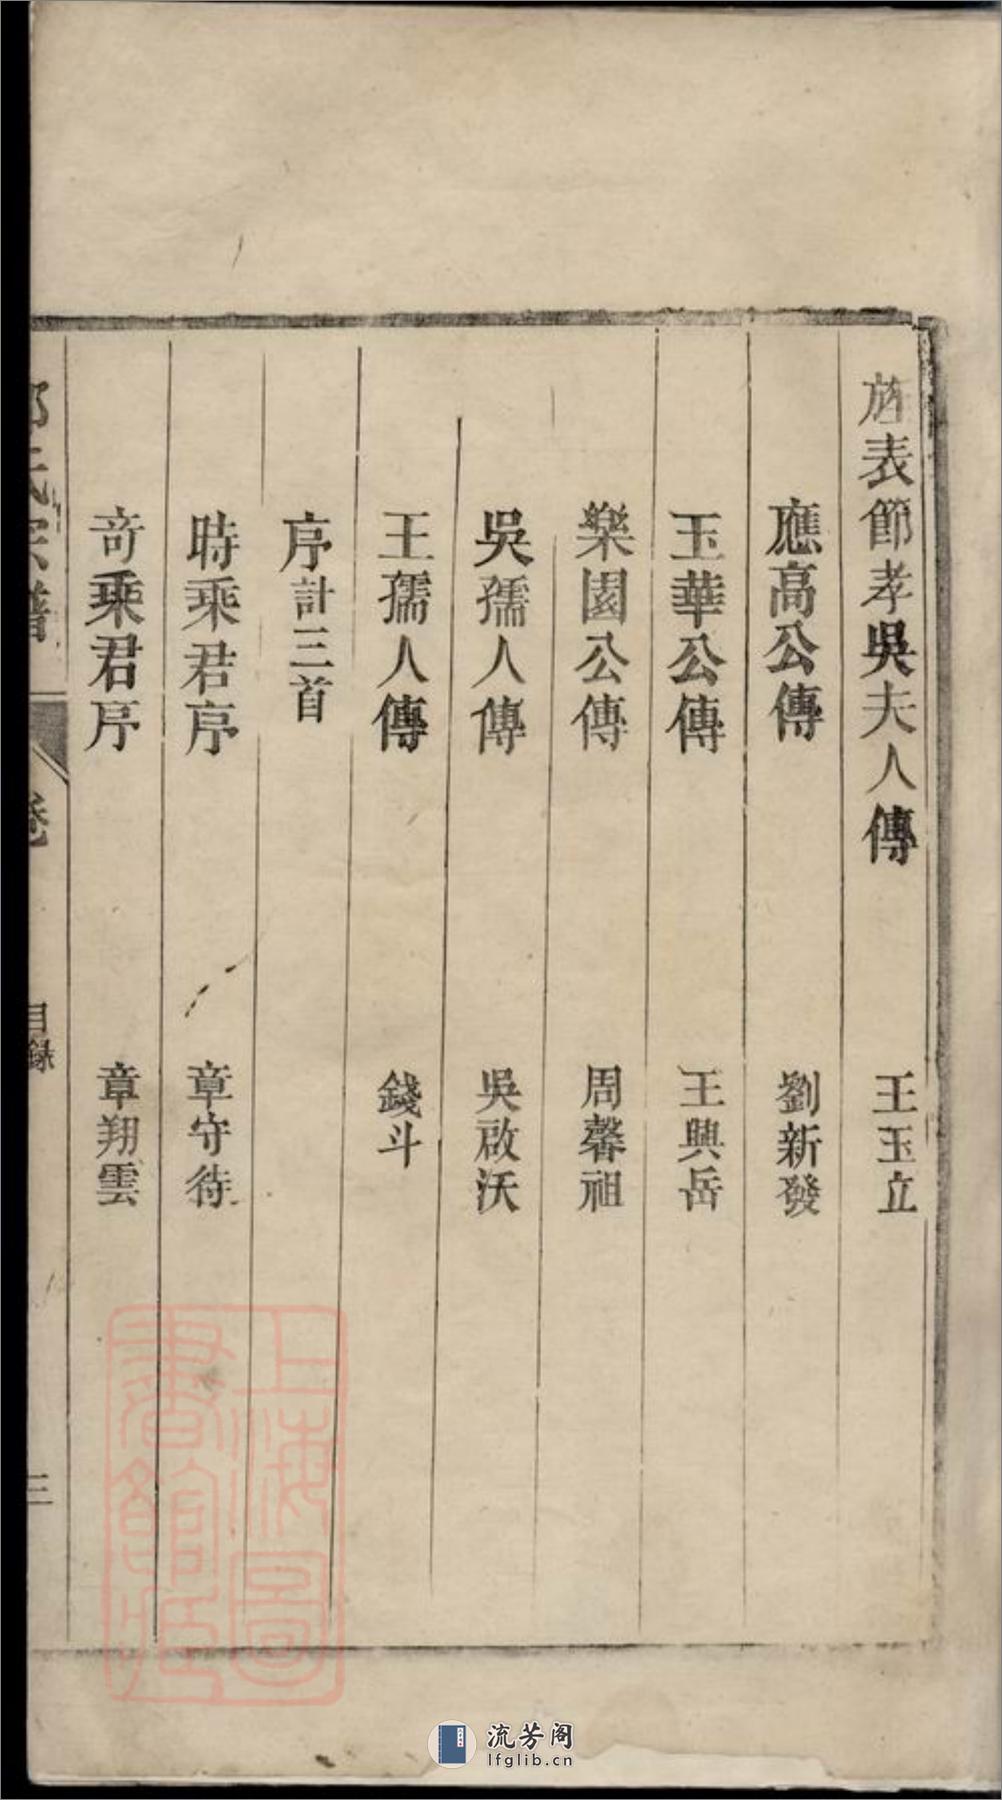 旌表節孝吳夫人傳 王玉立
應高公傳 劉新發
玉華公傳 王興岳
樂園公傳 周馨祖
吳孺人傳 吳啟沃
王孺人傳 錢斗
序計三首
時乘君序 章守待
奇乘君序 章翔雲
氏宗譜 卷 目錄 三
上海圖書館藏
流芳阁
lfglib.cn